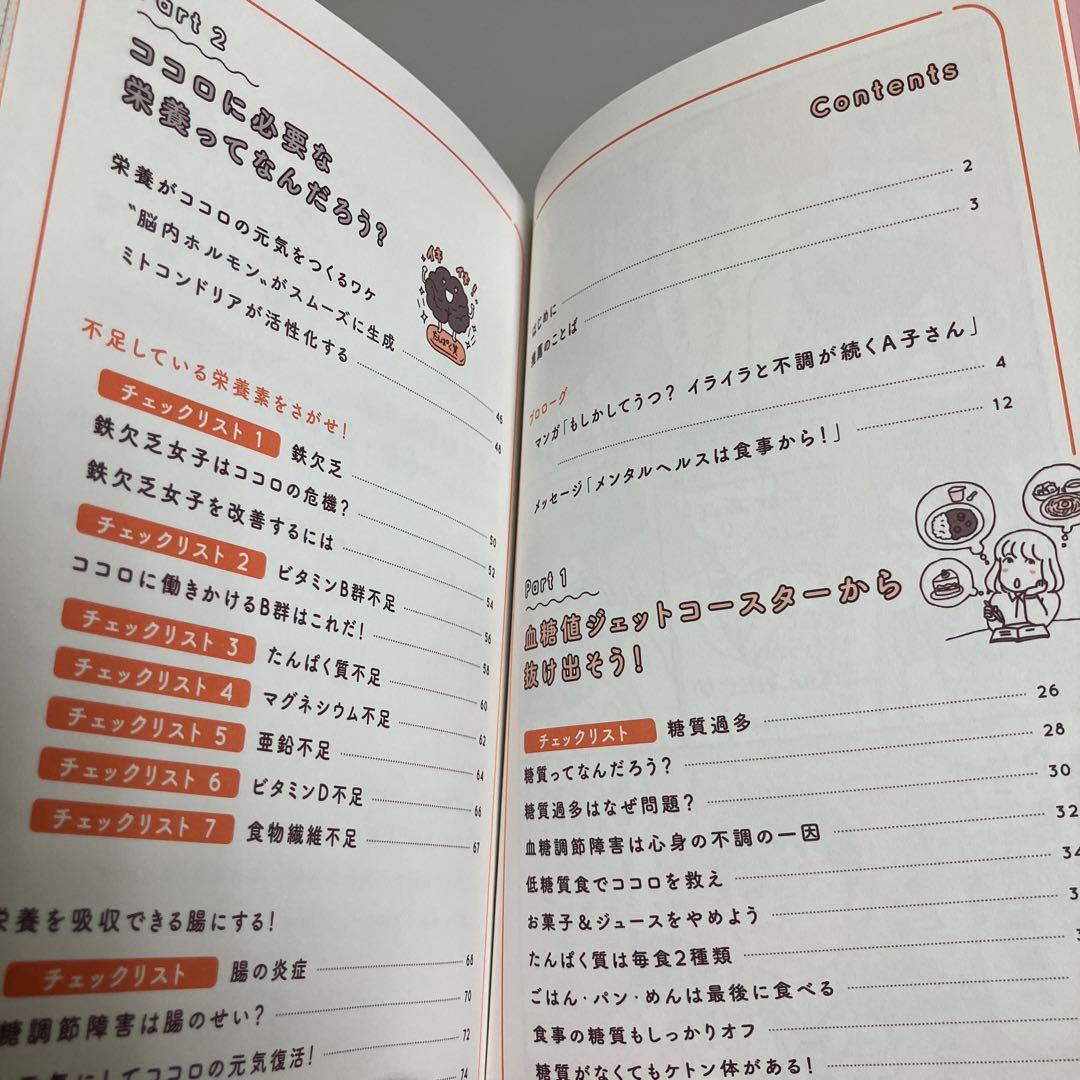 Contents
はじめに 2
推薦のことば 3
プロローグ
マンガ「もしかしてうつ? イライラと不調が続くA子さん」
4
メッセージ「メンタルヘルスは食事から!」 12
Part 1
血糖値ジェットコースターから
抜け出そう!
チェックリスト 糖質過多 26
糖質ってなんだろう? 28
糖質過多はなぜ問題? 30
血糖調節障害は心身の不調の一因 32
低糖質食でココロを救え 34
お菓子&ジュースをやめよう 3
たんぱく質は毎食2種類
ごはん・パン・めんは最後に食べる
食事の糖質もしっかりオフ
糖質がなくてもケトン体がある!
Part 2
ココロに必要な
栄養ってなんだろう?
栄養がココロの元気をつくるワケ
“脳内ホルモン”がスムーズに生成 46
ミトコンドリアが活性化する 48
イキ
イキ!
たんぱく質
不足している栄養素をさがせ!
チェックリスト 1 鉄欠乏 50
鉄欠乏女子はココロの危機? 52
鉄欠乏女子を改善するには 54
チェックリスト 2 ビタミンB群不足 56
ココロに働きかけるB群はこれだ! 58
チェックリスト 3 たんぱく質不足 60
チェックリスト 4 マグネシウム不足 62
チェックリスト 5 亜鉛不足 64
チェックリスト 6 ビタミンD不足 66
チェックリスト 7 食物繊維不足 67
栄養を吸収できる腸にする!
チェックリスト 腸の炎症 68
糖調節障害は腸のせい? 70
気にしてココロの元気復活! 72
74